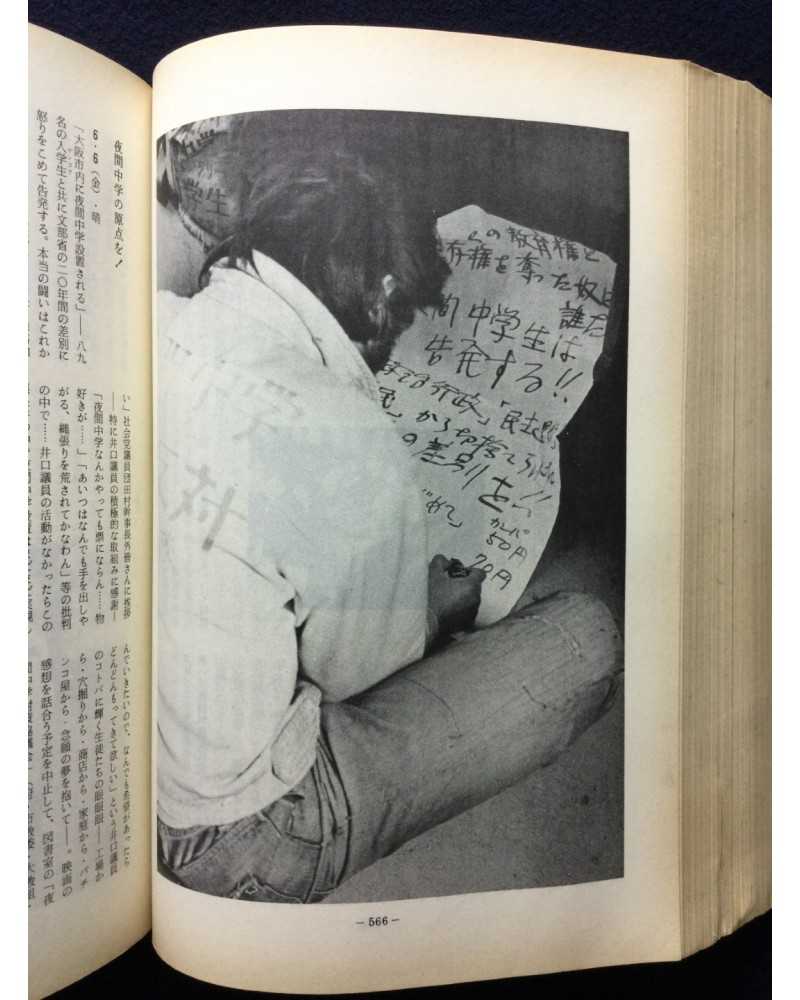 夜間中学の原点を!
6・6(金)・晴
「大阪市内に夜間中学設置される」——八九
名の入学生と共に文部省の二〇年間の差別に
怒りをこめて告発する。本当の闘いはこれか
い」社会党議員団田村幹事長外皆さんに挨拶
——特に井口議員の積極的な取組みに感謝—
「夜間中学なんかやっても票にならん……物
好きが……」「あいつはなんでも手を出しや
がる、縄張りを荒されてかなわん」等の批判
の中で……井口議員の活動がなかったらこの
んでいきたいので、なんでも希望があったら
どんどんもってきて欲しい」という井口議員
のコトバに輝く生徒たちの眼眼眼——工場か
ら・穴掘りから・商店から・家庭から・パチ
ンコ屋から・念願の夢を抱いて——。映画の
感想を話合う予定を中止して、図書室の「夜
学生
対
の教育権と
存権を奪った奴は
誰だ
間中学生は
告発する!!
行政」「民主
から切捨て
の差別を
カンパ
50円
70円
—566—